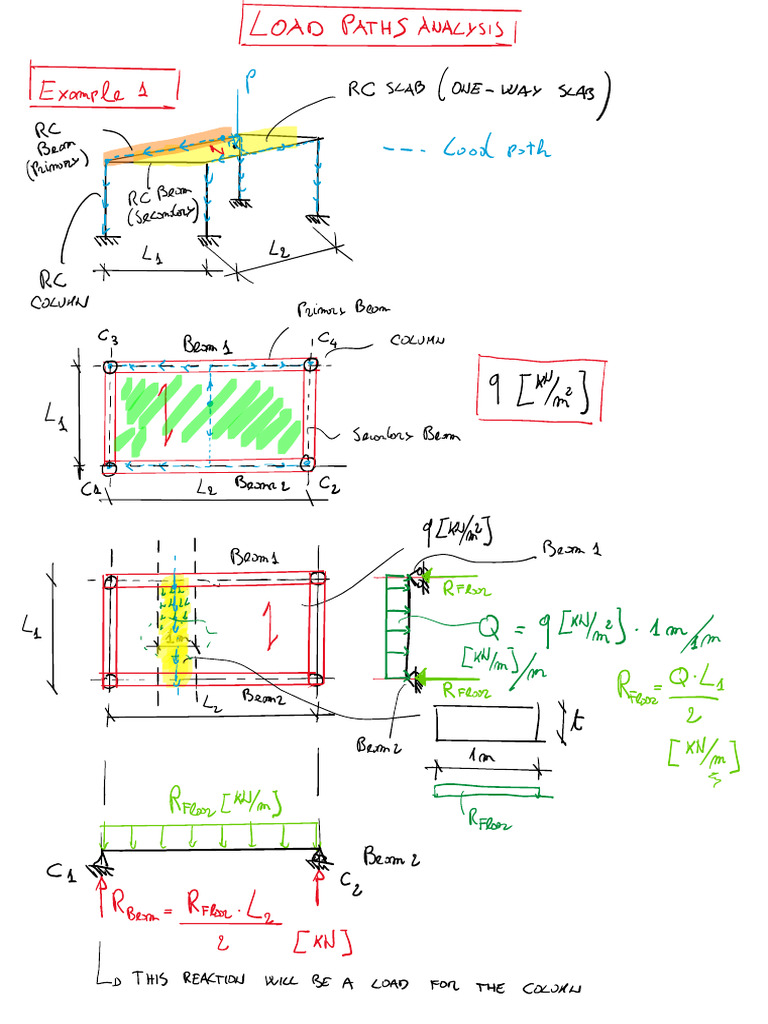 LOAD PATHS ANALYSIS
Example 1
P
RC SLAB (ONE-WAY SLAB)
RC
Beam
(Primary)
--- Load path
RC Beam
(Secondary)
RC
COLUMN
L1
L2
Primary Beam
C3
Beam 1
C4
COLUMN
q [KN/m²]
L1
Secondary Beam
C1
L2
Beam 2
C2
q [KN/m²]
Beam 1
Beam 1
RFloor
L1
1m
Q = q [KN/m²] · 1m/1m
[KN/m]/m
RFloor
RFloor = Q·L1
2
[KN/m]
L2
Beam 2
Beam 2
t
1m
RFloor
RFloor [KN/m]
C1
Beam 2
C2
RBeam = RFloor · L2
2 [KN]
THIS REACTION WILL BE A LOAD FOR THE COLUMN